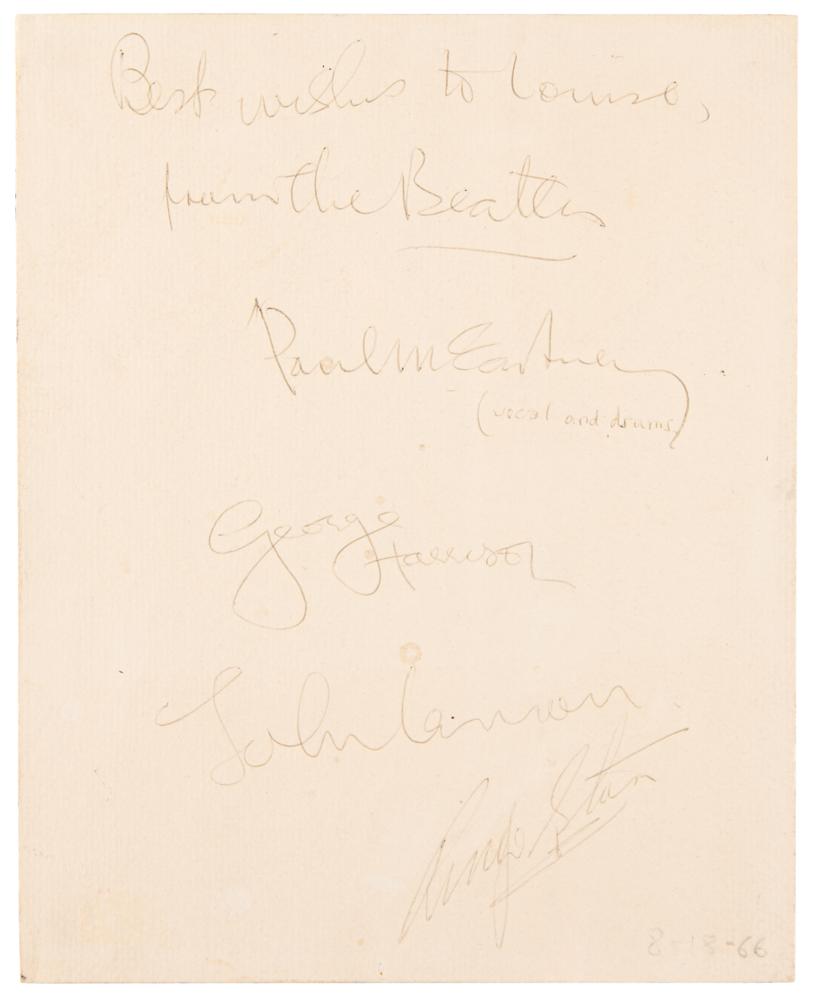 Best wishes to Louise,
from the Beatles
Paul McCartney
(vocal and drums)
George
Harrison
John Lennon
Ringo Starr
8-18-66